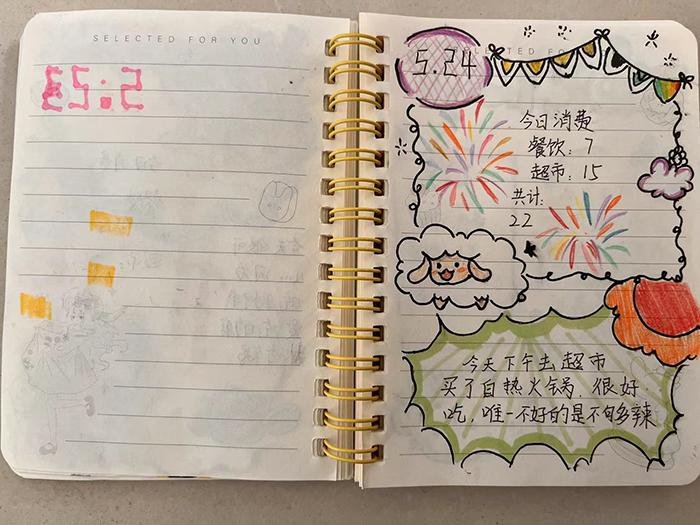 SELECTED FOR YOU
5.24
今日消费
餐饮：7
超市：15
共计：
22
今天下午去超市
买了自热火锅，很好
吃，唯一不好的是不够多辣